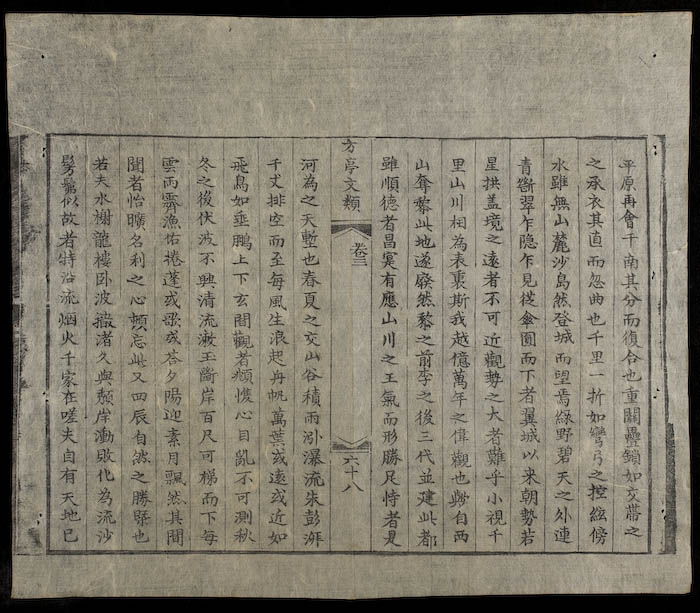 平原再會千南其分而復合也重關疊鎖如交帶之
之承衣其直而忽曲也千里一折如彎弓之控絃傍
水雖無山麓沙島然登城而望焉綠野碧天之外連
青嶄翠乍隐乍見從傘圓而下者翼城以来朝勢若
星拱盖境之遠者不可近觀勢之大者難乎小視千
里山川相為表裏斯我越億萬年之偉觀也與自西
山奪黎此地遂廢然黎之前李之後三代並建此都
雖順德者昌寔有應山川之王氣而形勝足恃者是
方亭文類
卷三
六十八
河為之天塹也春夏之交山谷積雨泓瀑流朱彭湃
千丈排空而至每風生浪起舟帆萬葉或遠或近如
飛鳥如垂鵬上下玄間觀者頽心目亂不可測秋
冬之後伏波不興清流漱玉斷岸百尺可梯而下每
雲雨霽漁佑捲蓬或歌或答夕陽迎素月飄然其間
聞者怡曠名利之心頓忘此又四辰自然之勝槩也
若夫水榭龍樓卧波渚久與頽岸泐敗化為流沙
髣髴似故者特沿流烟火千家在嗟夫自有天地已